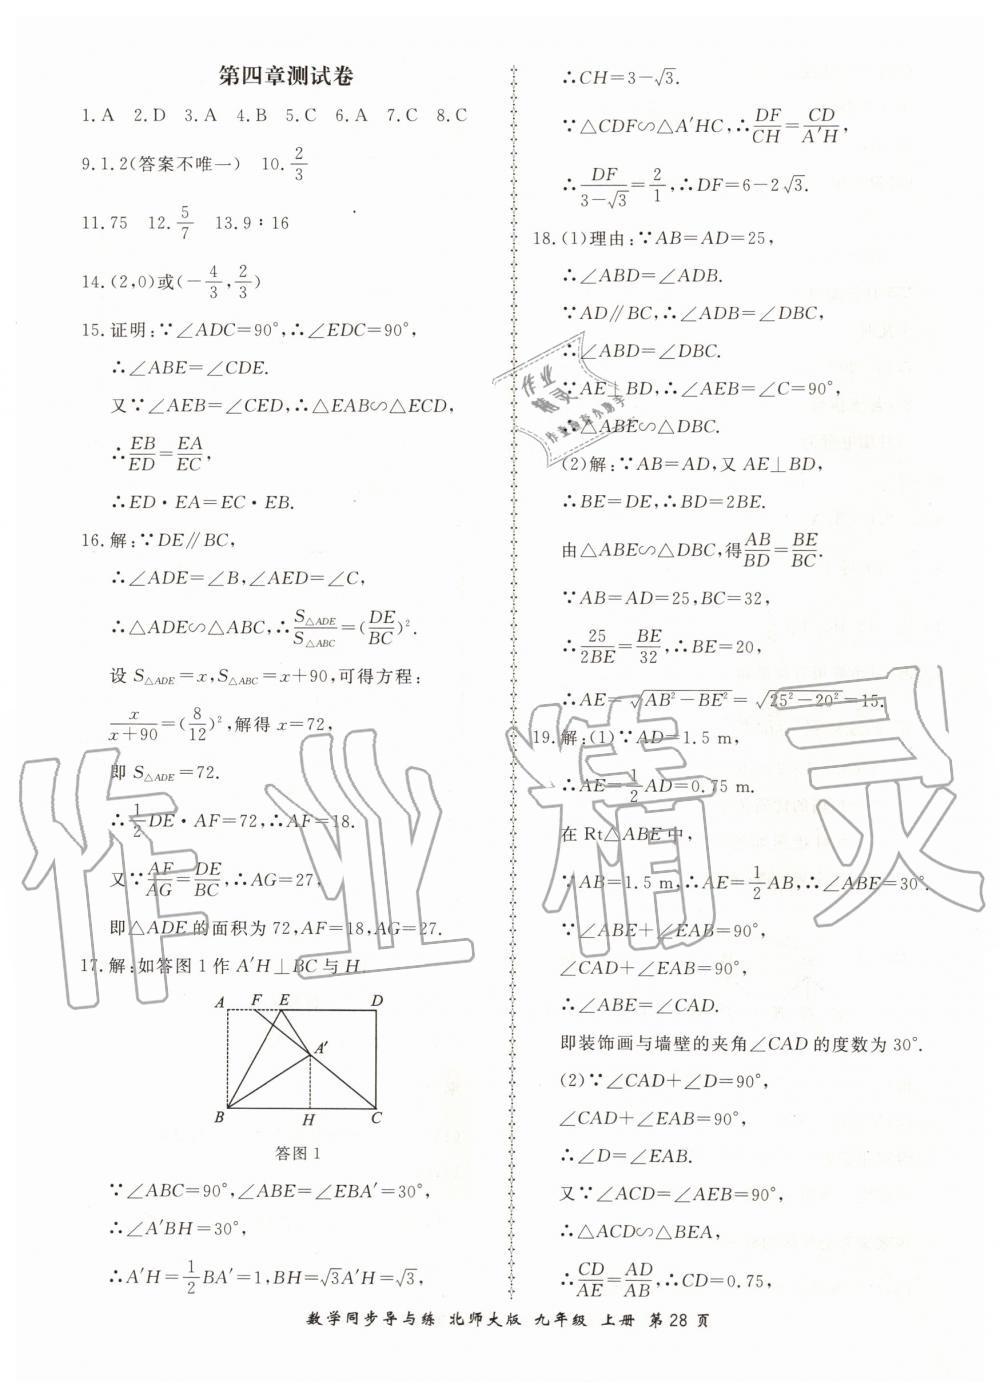 第四章测试卷
1.A 2.D 3.A 4.B 5.C 6.A 7.C 8.C
9.1.2(答案不唯一) 10.2/3
11.75 12.5/7 13.9∶16
14.(2,0)或(-4/3,2/3)
15.证明:∵∠ADC=90°,∴∠EDC=90°,
∴∠ABE=∠CDE.
又∵∠AEB=∠CED,∴△EAB∽△ECD,
∴EB/ED=EA/EC,
∴ED·EA=EC·EB.
16.解:∵DE∥BC,
∴∠ADE=∠B,∠AED=∠C,
∴△ADE∽△ABC,∴S△ADE/S△ABC=(DE/BC)².
设S△ADE=x,S△ABC=x+90,可得方程:
x/(x+90)=(8/12)²,解得x=72,
即S△ADE=72.
∴1/2DE·AF=72,∴AF=18.
又∵AF/AG=DE/BC,∴AG=27,
即△ADE的面积为72,AF=18,AG=27.
17.解:如答图1作A′H⊥BC与H.
A F E D
A′
B H C
答图1
∵∠ABC=90°,∠ABE=∠EBA′=30°,
∴∠A′BH=30°,
∴A′H=1/2BA′=1,BH=√3A′H=√3,
∴CH=3-√3.
∵△CDF∽△A′HC,∴DF/CH=CD/A′H,
∴DF/(3-√3)=2/1,∴DF=6-2√3.
18.(1)理由:∵AB=AD=25,
∴∠ABD=∠ADB.
∵AD∥BC,∴∠ADB=∠DBC,
∴∠ABD=∠DBC.
∵AE⊥BD,∴∠AEB=∠C=90°,
∴△ABE∽△DBC.
(2)解:∵AB=AD,又AE⊥BD,
∴BE=DE,∴BD=2BE.
由△ABE∽△DBC,得AB/BD=BE/BC.
∵AB=AD=25,BC=32,
∴25/2BE=BE/32,∴BE=20,
∴AE=√(AB²-BE²)=√(25²-20²)=15.
19.解:(1)∵AD=1.5 m,
∴AE=1/2AD=0.75 m.
在Rt△ABE中,
∵AB=1.5 m,∴AE=1/2AB,∴∠ABE=30°.
∵∠ABE+∠EAB=90°,
∠CAD+∠EAB=90°,
∴∠ABE=∠CAD.
即装饰画与墙壁的夹角∠CAD的度数为30°.
(2)∵∠CAD+∠D=90°,
∠CAD+∠EAB=90°,
∴∠D=∠EAB.
又∵∠ACD=∠AEB=90°,
∴△ACD∽△BEA,
∴CD/AE=AD/AB,∴CD=0.75,
数学同步导与练 北师大版 九年级 上册 第28页
作业精灵
作业
精灵